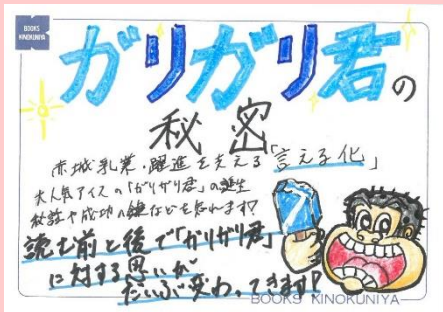 BOOKS
KINOKUNIYA
ガリガリ君の
秘密
赤城乳業・躍進を支える「言える化」
大人気アイスの「ガリガリ君」の誕生
秘話や成功の鍵などを
読む前と後で「ガリガリ君」
に対する思いが
だいぶ変わってきます!
BOOKS KINOKUNIYA